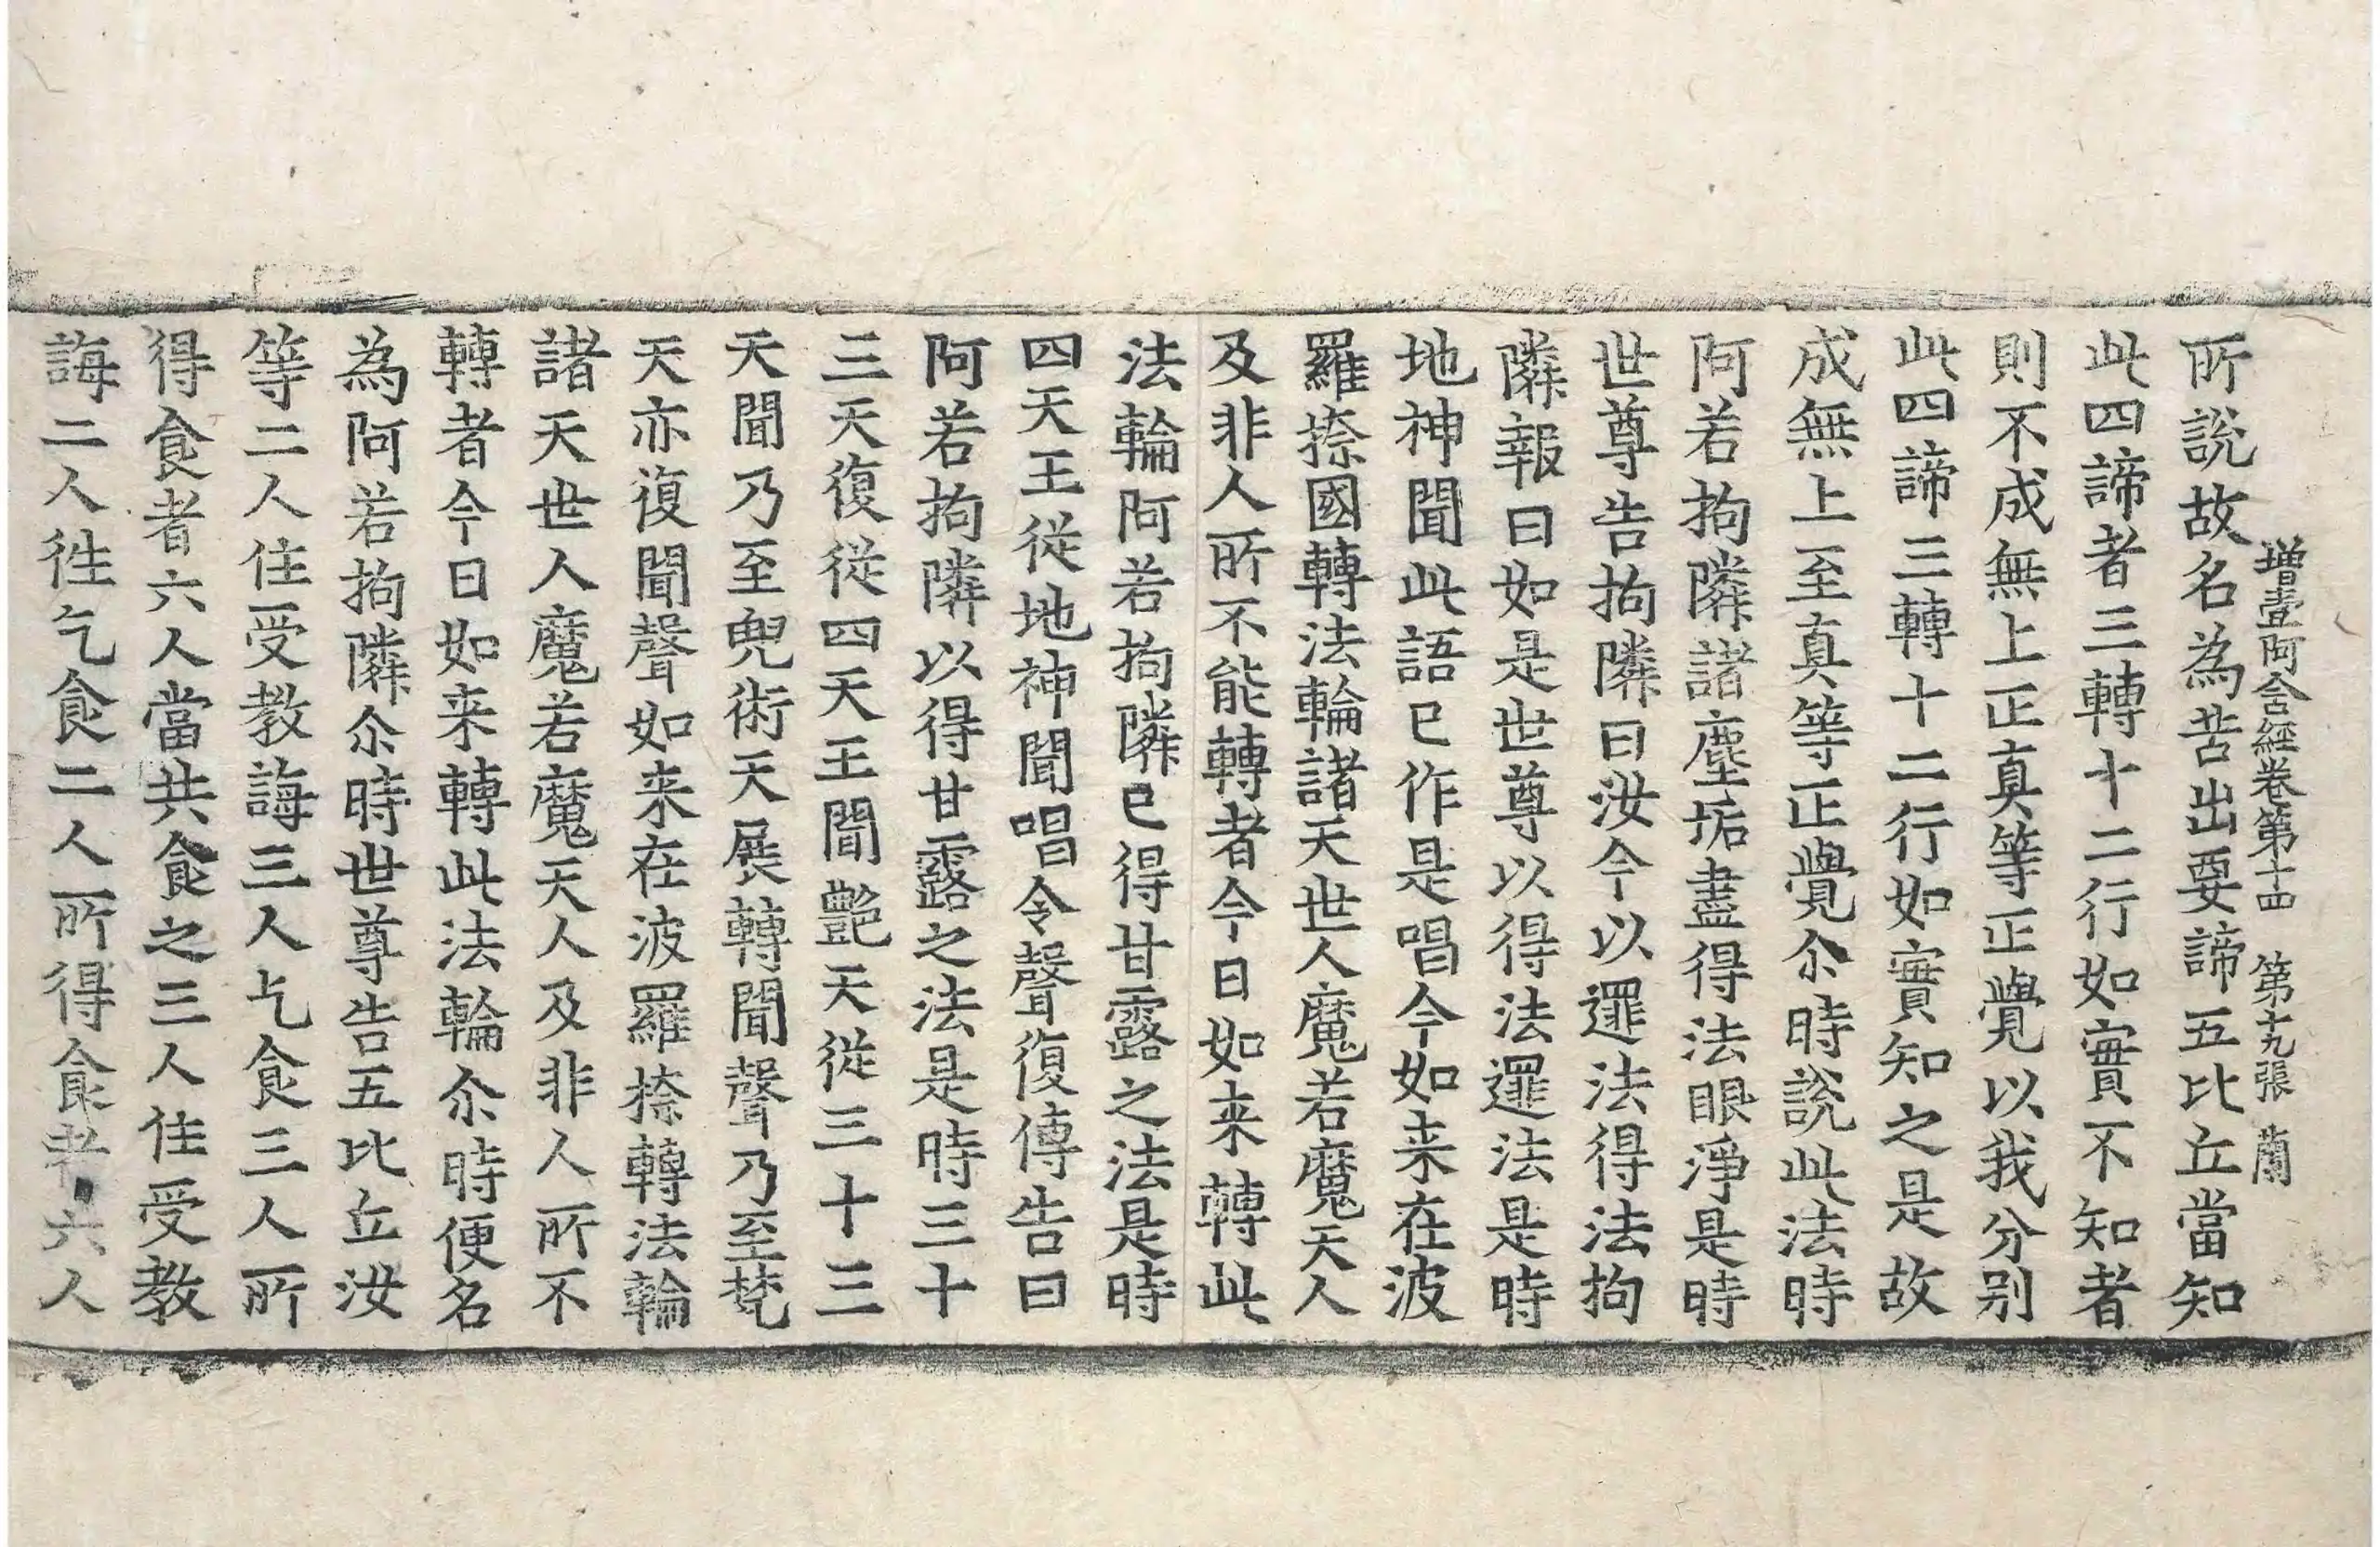 增壹阿含經卷第十四 第十九張 蘭
所說故名為苦出要諦五比丘當知
此四諦者三轉十二行如實不知者
則不成無上正真等正覺以我分別
此四諦三轉十二行如實知之是故
成無上至真等正覺尒時說此法時
阿若拘隣諸塵垢盡得法眼淨是時
世尊告拘隣曰汝今以邏法得法拘
隣報曰如是世尊以得法邏法是時
地神聞此語已作是唱今如来在波
羅捺國轉法輪諸天世人魔若魔天人
及非人所不能轉者今日如来轉此
法輪阿若拘隣已得甘露之法是時
四天王從地神聞唱令聲復傳告曰
阿若拘隣以得甘露之法是時三十
三天復從四天王聞艷天從三十三
天聞乃至兜術天展轉聞聲乃至梵
天亦復聞聲如来在波羅捺轉法輪
諸天世人魔若魔天人及非人所不
轉者今日如来轉此法輪尒時便名
為阿若拘隣尒時世尊告五比丘汝
等二人住受教誨三人乞食三人所
得食者六人當共食之三人住受教
誨二人徃乞食二人所得食者六人